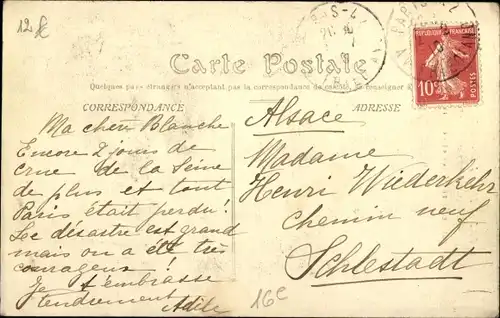 12 f
PARIS
Carte Postale
REPUBLIQUE FRANÇAISE
10c
Quelques pays étrangers n'acceptant pas la correspondance de ce côté, se renseigner à
CORRESPONDANCE
ADRESSE
Ma chère Blanche
Encore 2 jours de
crue de la Seine
de plus et tout
Paris était perdu!
Le désastre est grand
mais on a été très
courageux!
Je t'embrasse
tendrement
Adile
Alsace
Madame
Henri Wiederkehr
chemin neuf
Schlestadt
16e